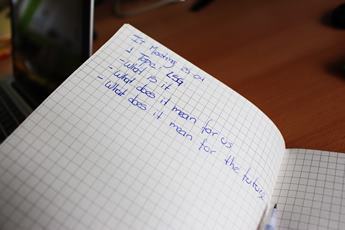 IT Meeting 25.01
1 Topic: LSA
- what is it
- what does it mean for us
- what does it mean for the future